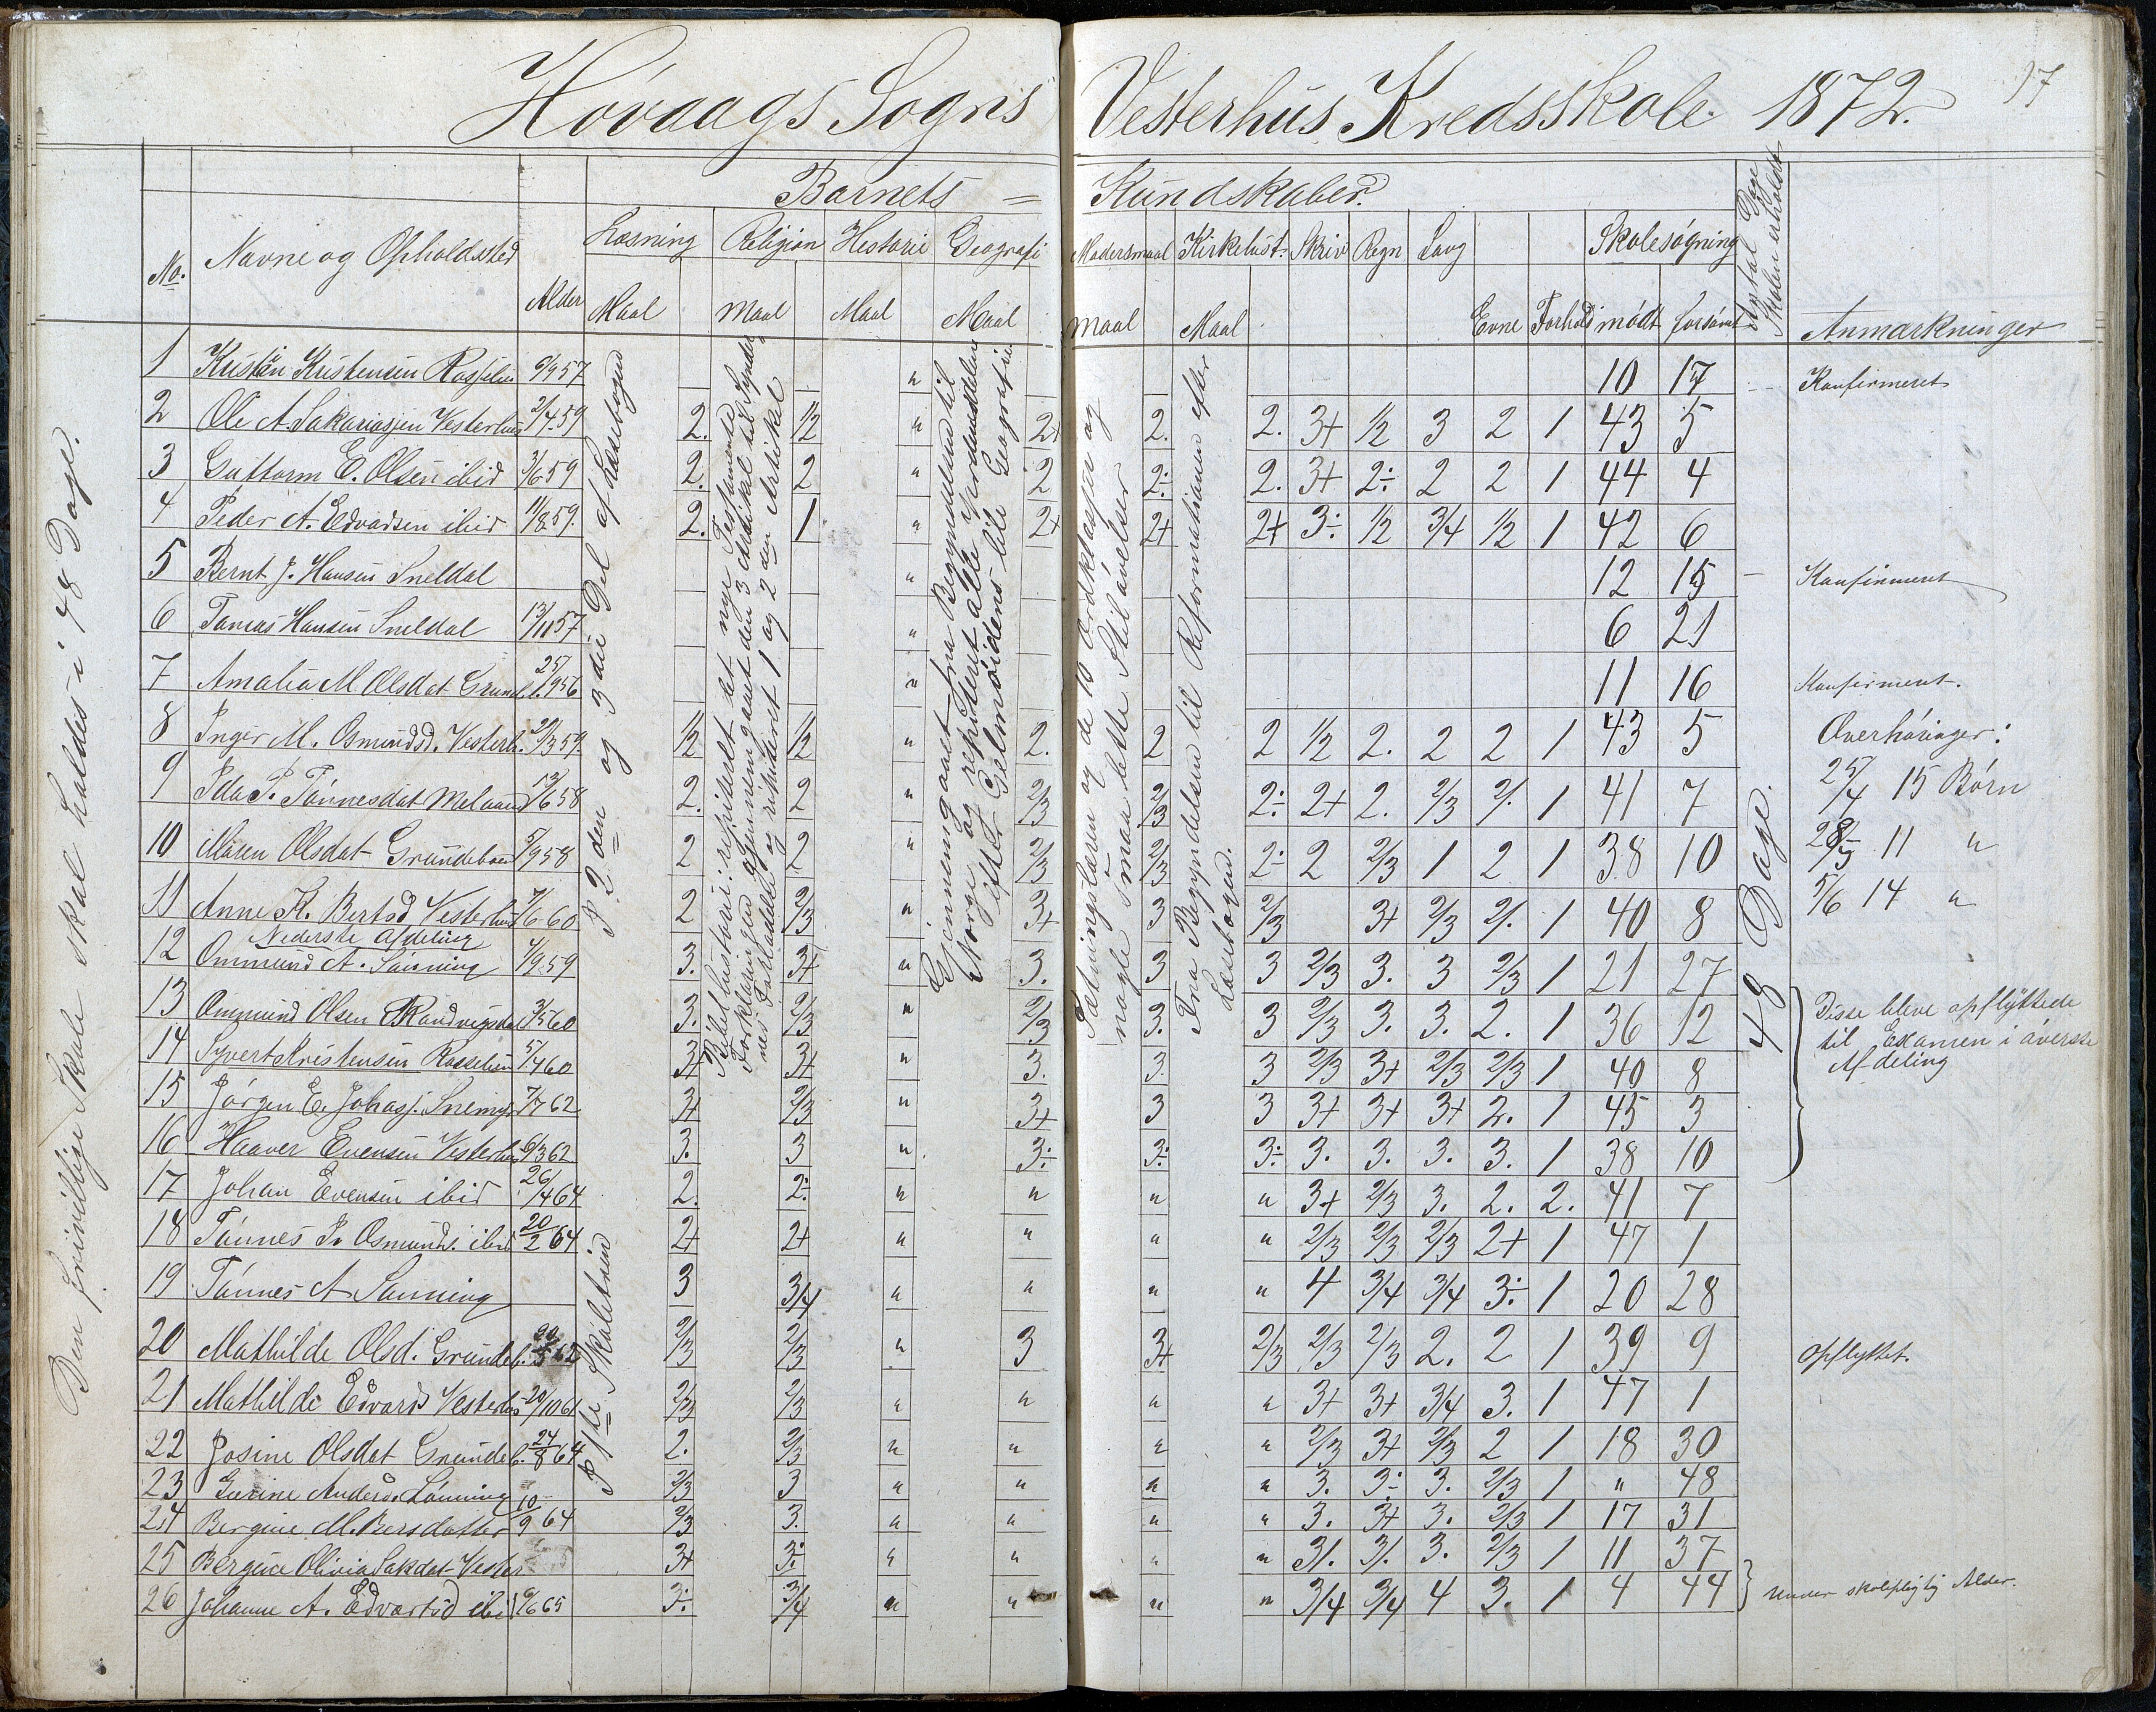 Hövaags Sogns Vesterhus Kredsskole. 1872.
17
Barnets = Kundskaber.
No. Navne og Opholdssted Alder Læsning Religion Historie Geografi Modersmaal Kirkehist. Skriv Regn Sang Evne Forhold Skolesøgning Antal Dage Skolen er holdt Anmærkninger
Maal Maal Maal Maal Maal Maal mödt forsömt
1 Kristen Kristensen 6/9 57 " 10 17 Konfirmeret
2 Ole A. Sakariasen Vesterhus 2/4 59 2. 1/2 " 2+ 2. 2. 3+ 1/2 3 2 1 43 5
3 Guttorm E. Olsen ibid 3/6 59 2. 2 " 2 2÷ 2. 3+ 2÷ 2 2 1 44 4
4 Peder A. Edvardsen ibid 11/8 59. 2. 1 " 2+ 2+ 2+ 3÷ 1/2 3/4 1/2 1 42 6
5 Bernt J. Hansen Sneldal " 12 15 Konfirmeret
6 Tomas Hansen Sneldal 13/11 57 " 6 21
7 Amalia M Olsdat Grundeb. 25/9 56 " 11 16 Konfirmeret.
8 Inger M. Osmundsd. Vesterh. 20/3 59 1/2 1/2 " 2. 2 2 1/2 2. 2 2 1 43 5 Overhøringer:
9 Ida P. Tønnesdat 13/6 58 2. 2 " 2/3 2/3 2÷ 2+ 2. 2/3 2/. 1 41 7 25/4 15 Børn
10 Maren Olsdat Grundeboen 5/9 58 2 2 " 2/3 2/3 2÷ 2 2/3 1 2 1 38 10 28/5 11 "
11 Anne K. Bertsd Vesterhus 7/6 60 2 2/3 " 3+ 3 2/3 3+ 2/3 2/. 1 40 8 5/6 14 "
Nederste Afdeling
12 Ommund A. Sånning 4/9 59 3. 3+ " 3. 3 3 2/3 3. 3 2/3 1 21 27
13 Ommund Olsen 3/5 60 3. 2/3 " 2/3 3. 3 2/3 3. 3. 2. 1 36 12 Disse bleve opflyttede
14 Syvert Kristensen 5/4 60 3+ 3+ " 3. 3. 3 2/3 3+ 2/3 2/3 1 40 8 til Examen i øverste
15 Jörgen E. Johasj. Snemyr 7/7 62 3+ 2/3 " 3+ 3 3 3+ 3+ 3+ 2. 1 45 3 Afdeling
16 Haaver Evensen Vesterhus 6/3 62 3. 3 " 3÷ 3÷ 3÷ 3. 3. 3. 3. 1 38 10
17 Johan Evensen ibid 26/4 64 2. 2÷ " " " " 3+ 2/3 3. 2. 2. 41 7
18 Tönnes P. Osmunds. ibid 20/2 64 2+ 2+ " " " " 2/3 2/3 2/3 2+ 1 47 1
19 Tönnes A Sanning 3 3/4 " " " " 4 3/4 3/4 3÷ 1 20 28
20 Mathilde Olsd. Grundeb. 62 2/3 2/3 " 3 3+ 2/3 2/3 2/3 2. 2 1 39 9 Opflyttet.
21 Mathilde Edvards Vesterhus 20/10 61 2/3 2/3 " " " " 3+ 3+ 3/4 3. 1 47 1
22 Josine Olsdat Grundeb. 24/8 64 2. 2/3 " " " " 2/3 3+ 2/3 2 1 18 30
23 Gurine Andersd. 2/3 3 " " " " 3. 3÷ 3. 2/3 1 " 48
24 Bergine M. Bersdatter 10/9 64 2/3 3. " " " " 3. 3+ 3. 2/3 1 17 31
25 Bergine Olivia Sakdat Vester 3+ 3÷ " " " " 3/. 3/. 3. 2/3 1 11 37
26 Johanne A. Edvartsd ibid 6/6 65 3÷ 3/4 " " " " 3/4 3/4 4 3. 1 4 44 under skolepligtig Alder.
Den frivillige Skole skal holdes i 48 Dage.
P. 2den og 3die Del af Læsebogen
P 1ste Skoletrin
Bibelhistorie: repiteret det nye Testamente
Forklaringen gjennemgaaet den 3 Artikkel til Synder-
nes Forladelse og repiteret 1 og 2 den Artikel
Gjennemgaaet fra Begyndelsen til
Norge og repiteret alle Verdensdelene
efter Geelmuidens lille Geografie
Sætningslæren og de 10 Ordklasser og
nogle smaa lette Stiløvelser
Fra Begyndelsen til Reformationen efter
Læsebogen.
48 Dage.